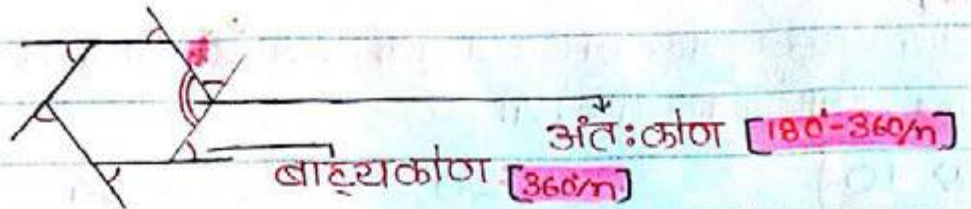 अंत:कोण [180°-360/n]
बाह्यकोण [360°/n]